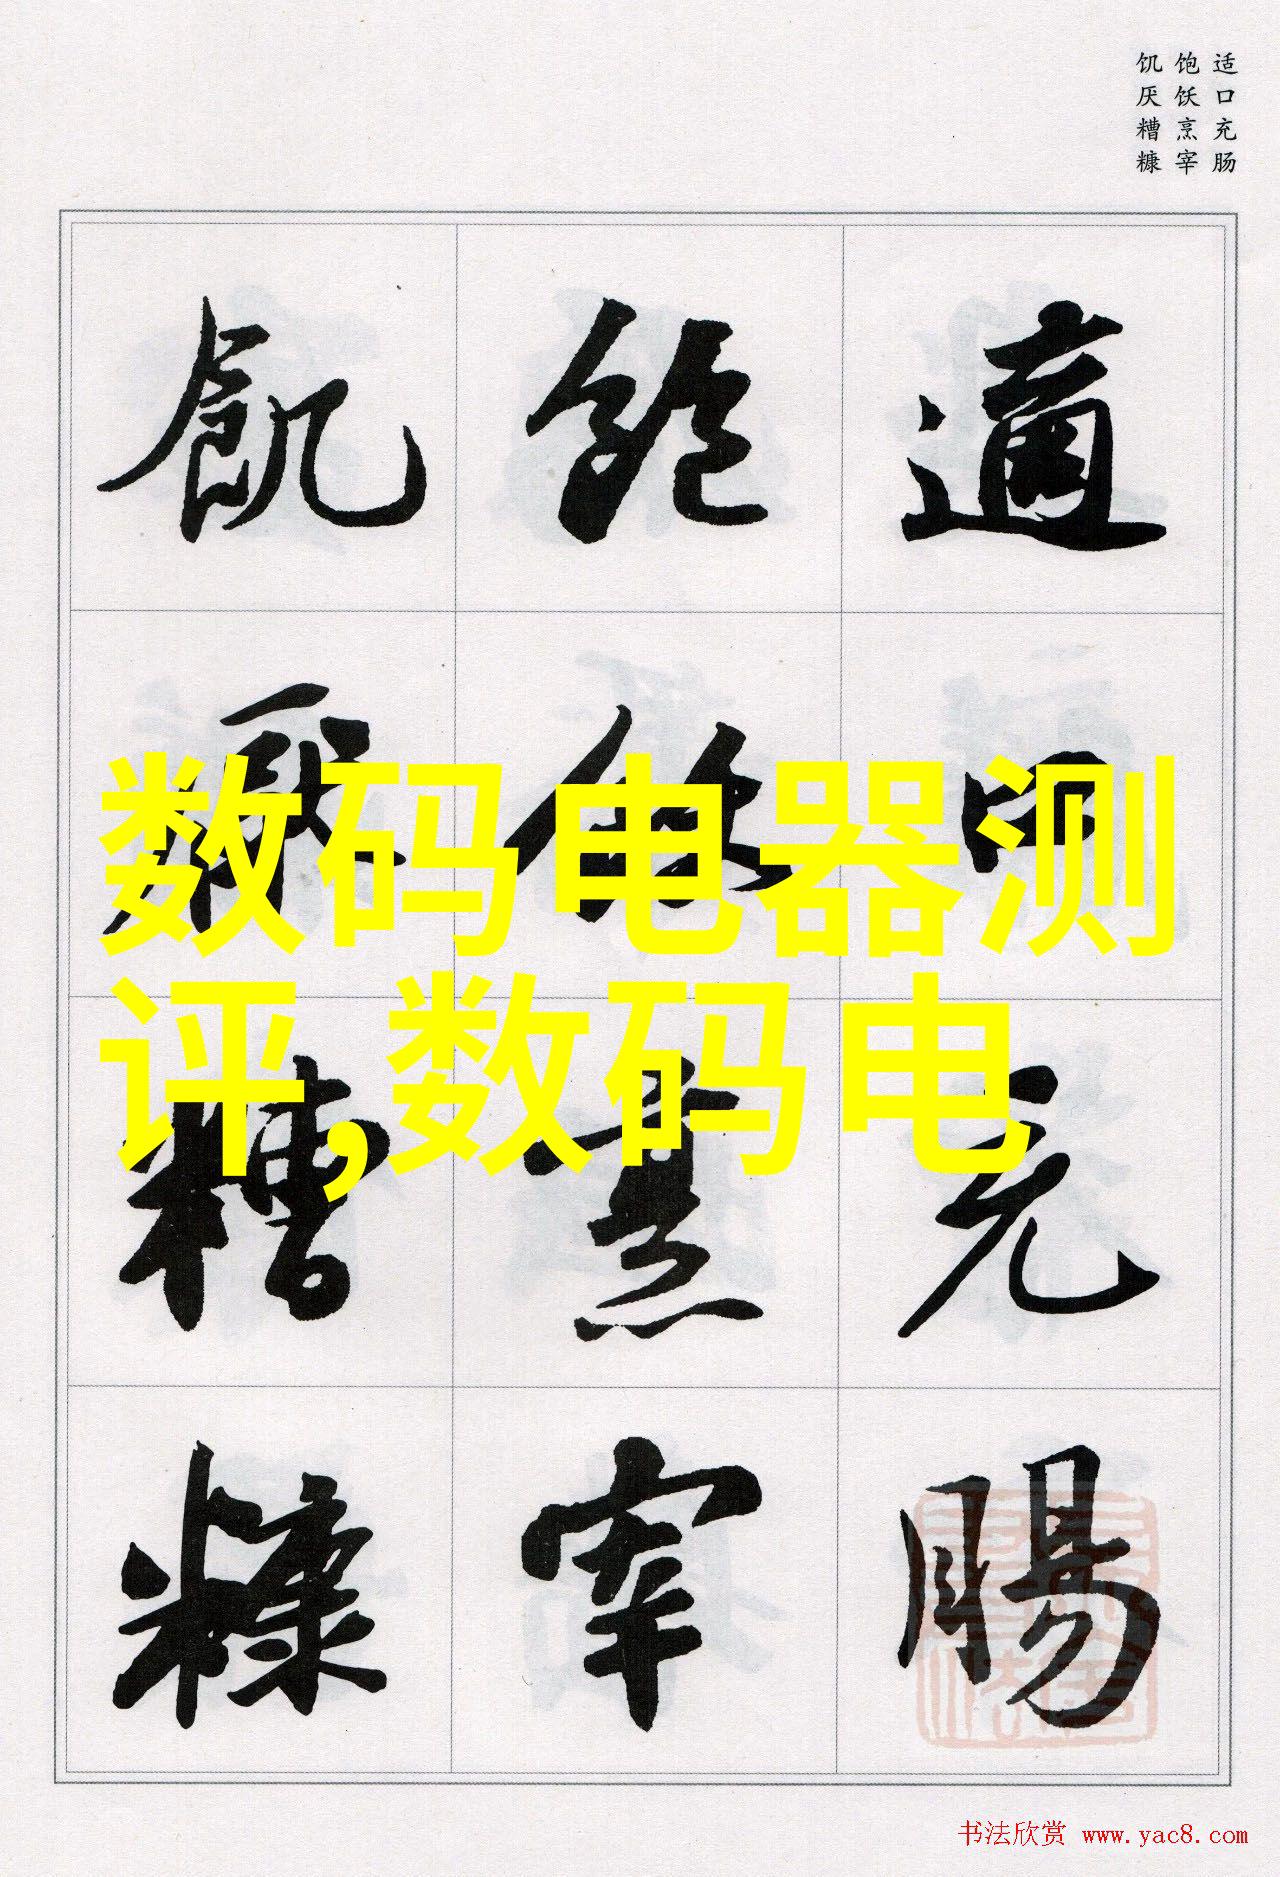 适口充肠
饱饫烹宰
饥厌糟糠
適口充腸
飽飫烹宰
飢厭糟糠
数码电器测
评,数码电
书法欣赏 www.yac8.com